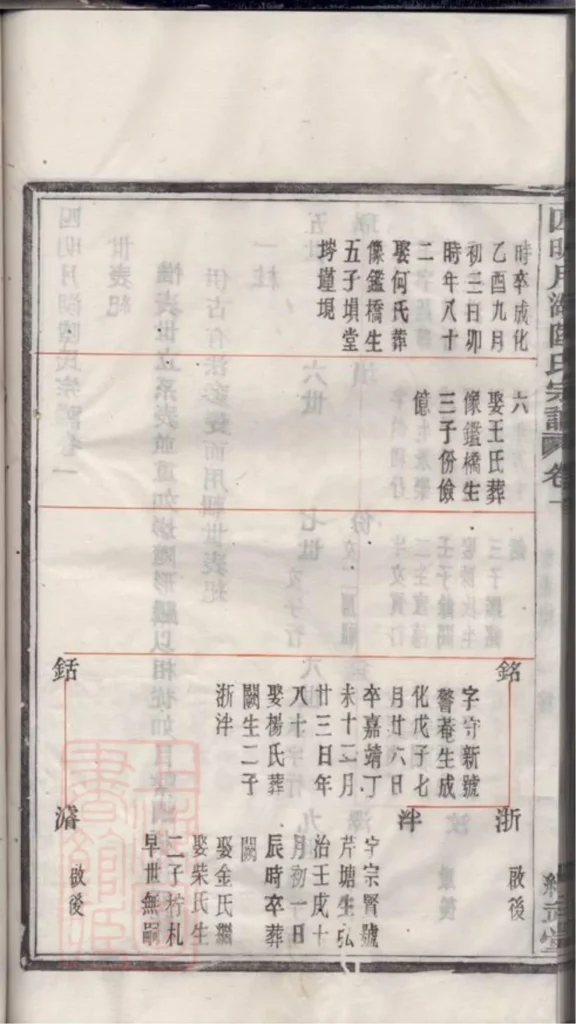 四明月湖陸氏宗譜 卷一
時卒成化
乙酉九月
初三日卯
時年八十
二
娶何氏葬
像鑑橋生
五子塤堂
墐
六
娶王氏葬
像鑑橋生
三子份儉
億
銘
字守新號
警菴生成
化戊子七
月廿六日
卒嘉靖丁
未十二月
廿三日年
八十
娶楊氏葬
闕生二子
浙泮
銛
浙
啟後
泮
字宗賢號
芹塘生弘
治壬戌十
月初一日
辰時卒葬
闕
娶金氏繼
娶柴氏生
二子柠札
早世無嗣
濬
啟後